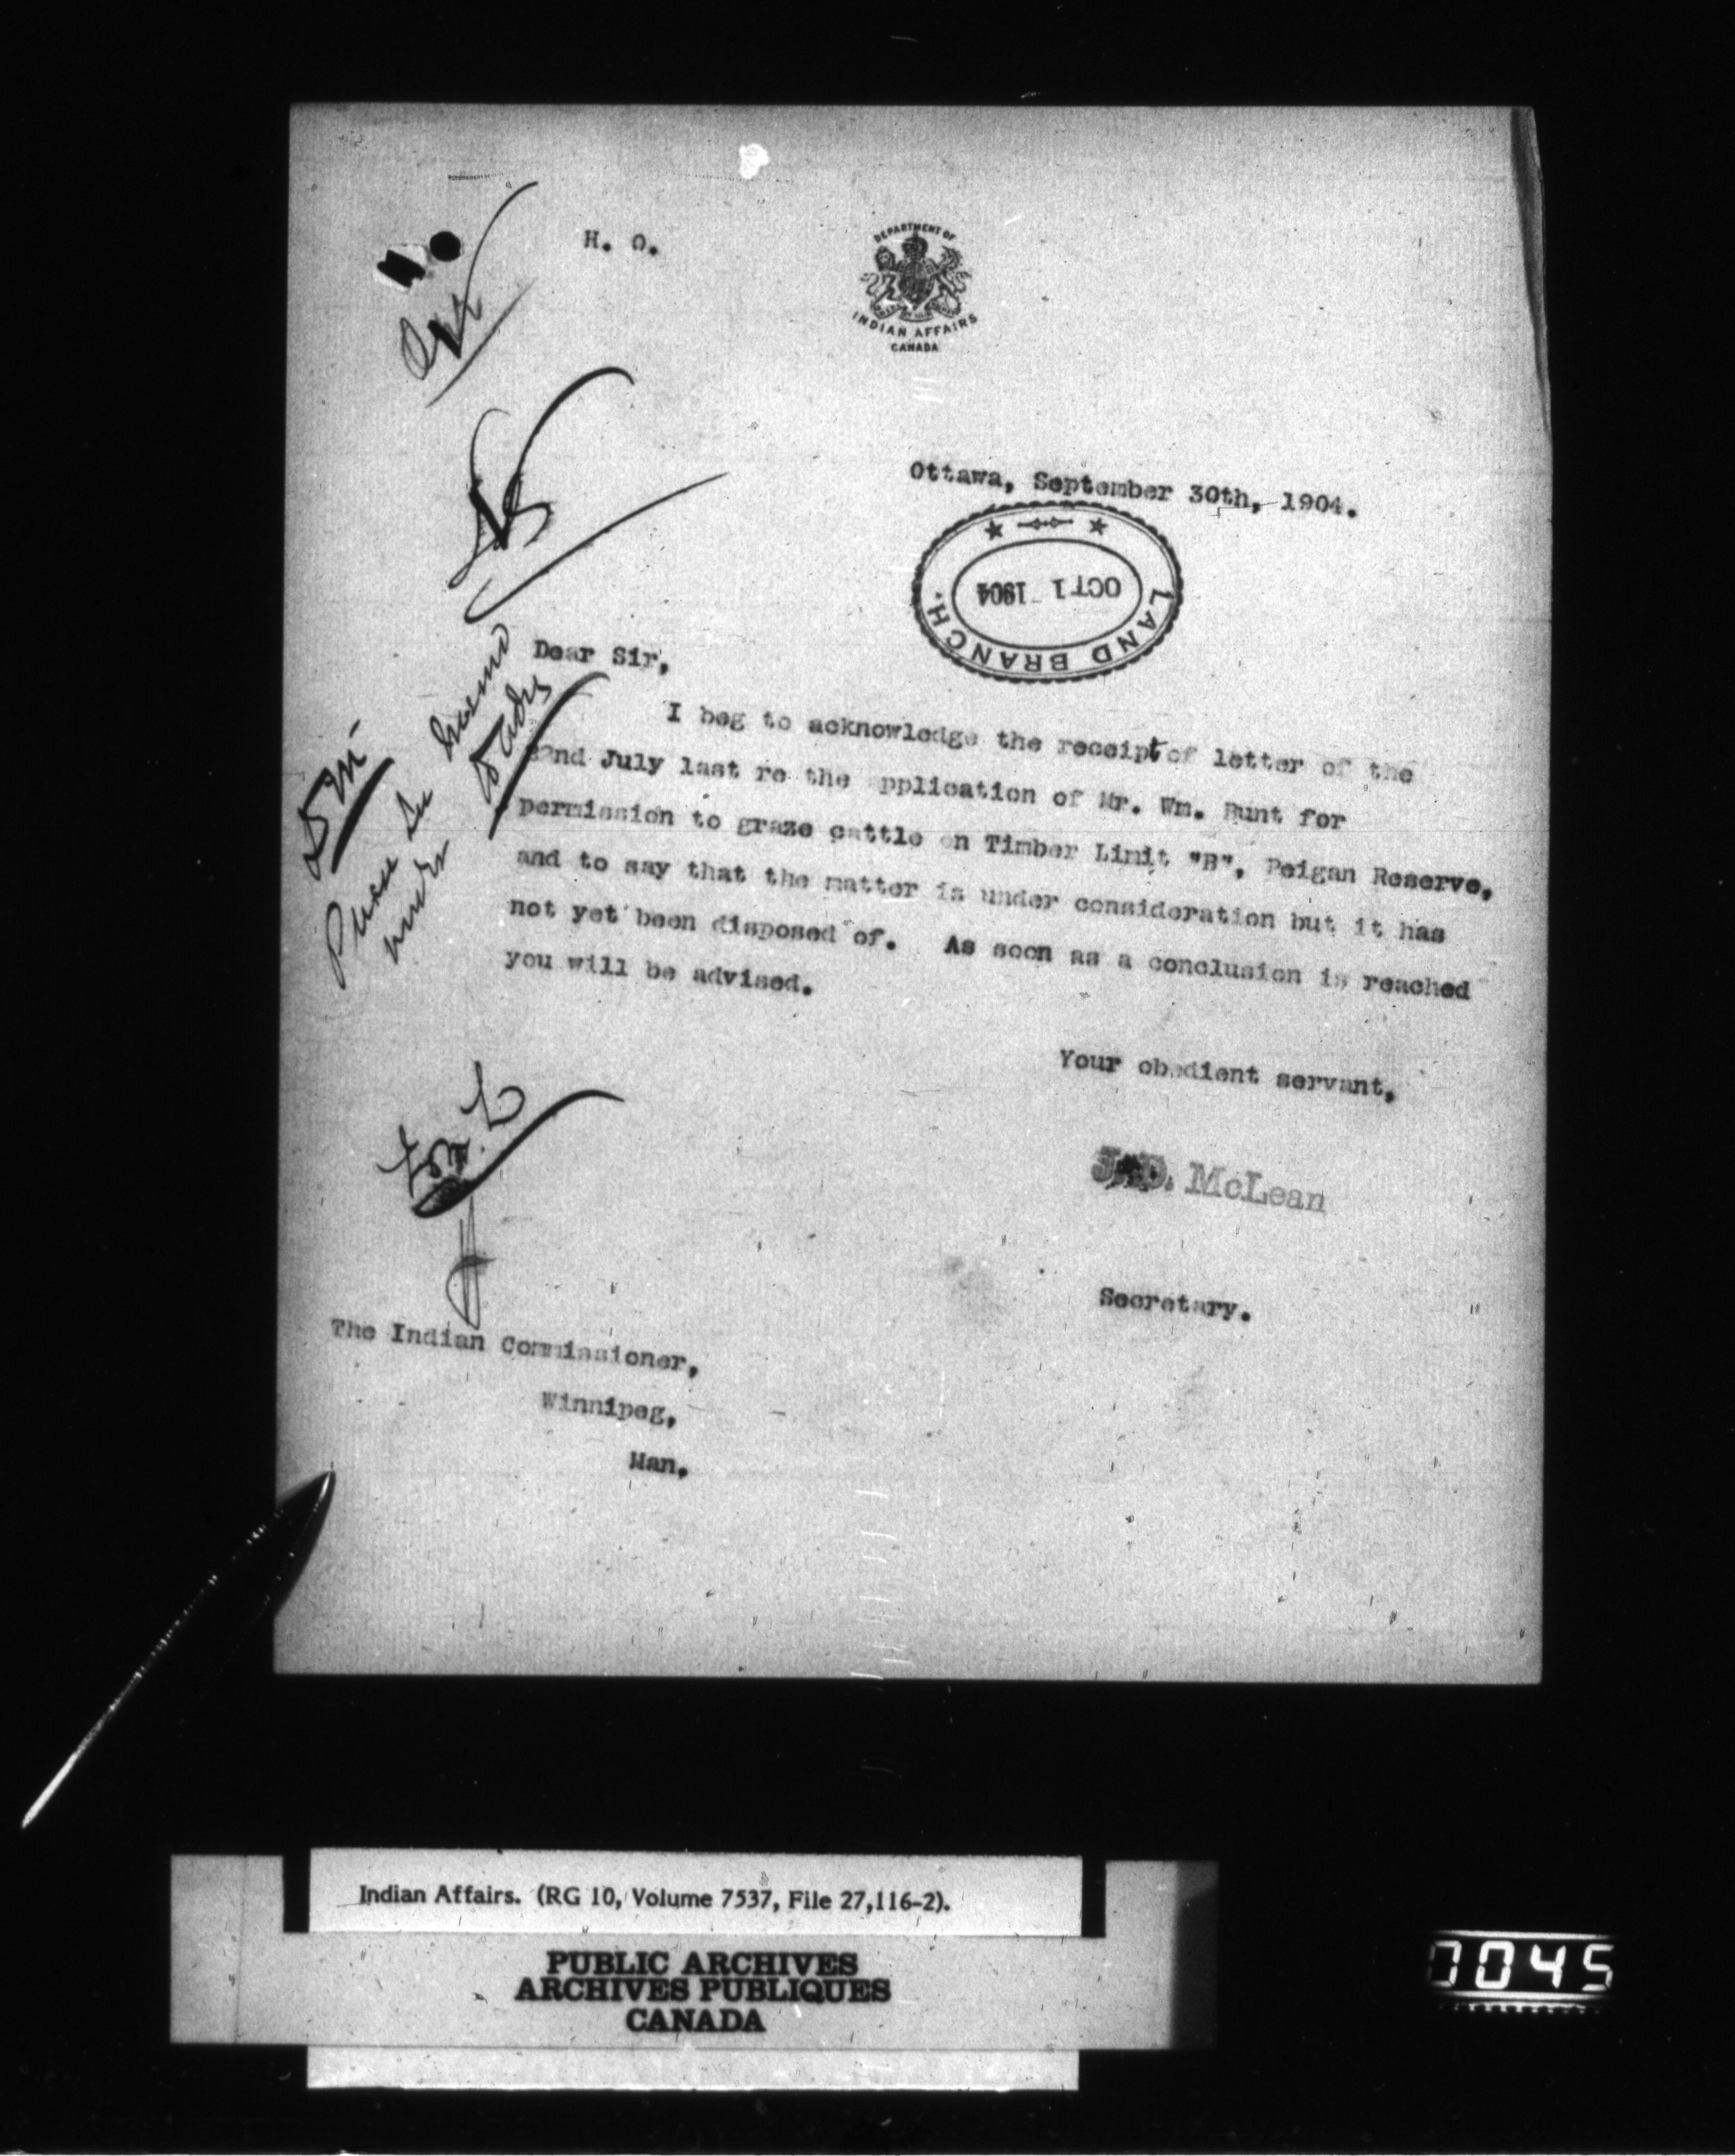 H. O.
DEPARTMENT OF
INDIAN AFFAIRS
CANADA
Ottawa, September 30th, 1904.
LAND BRANCH.
OCT 1 1904
Dear Sir,
I beg to acknowledge the receipt of letter of the
22nd July last re the application of Mr. Wm. Hunt for
permission to graze cattle on Timber Limit "B", Peigan Reserve,
and to say that the matter is under consideration but it has
not yet been disposed of. As soon as a conclusion is reached
you will be advised.
Please
memo
Your obedient servant,
J. D. McLean
Secretary.
The Indian Commissioner,
Winnipeg,
Man.
Indian Affairs. (RG 10, Volume 7537, File 27,116-2).
PUBLIC ARCHIVES
ARCHIVES PUBLIQUES
CANADA
0045